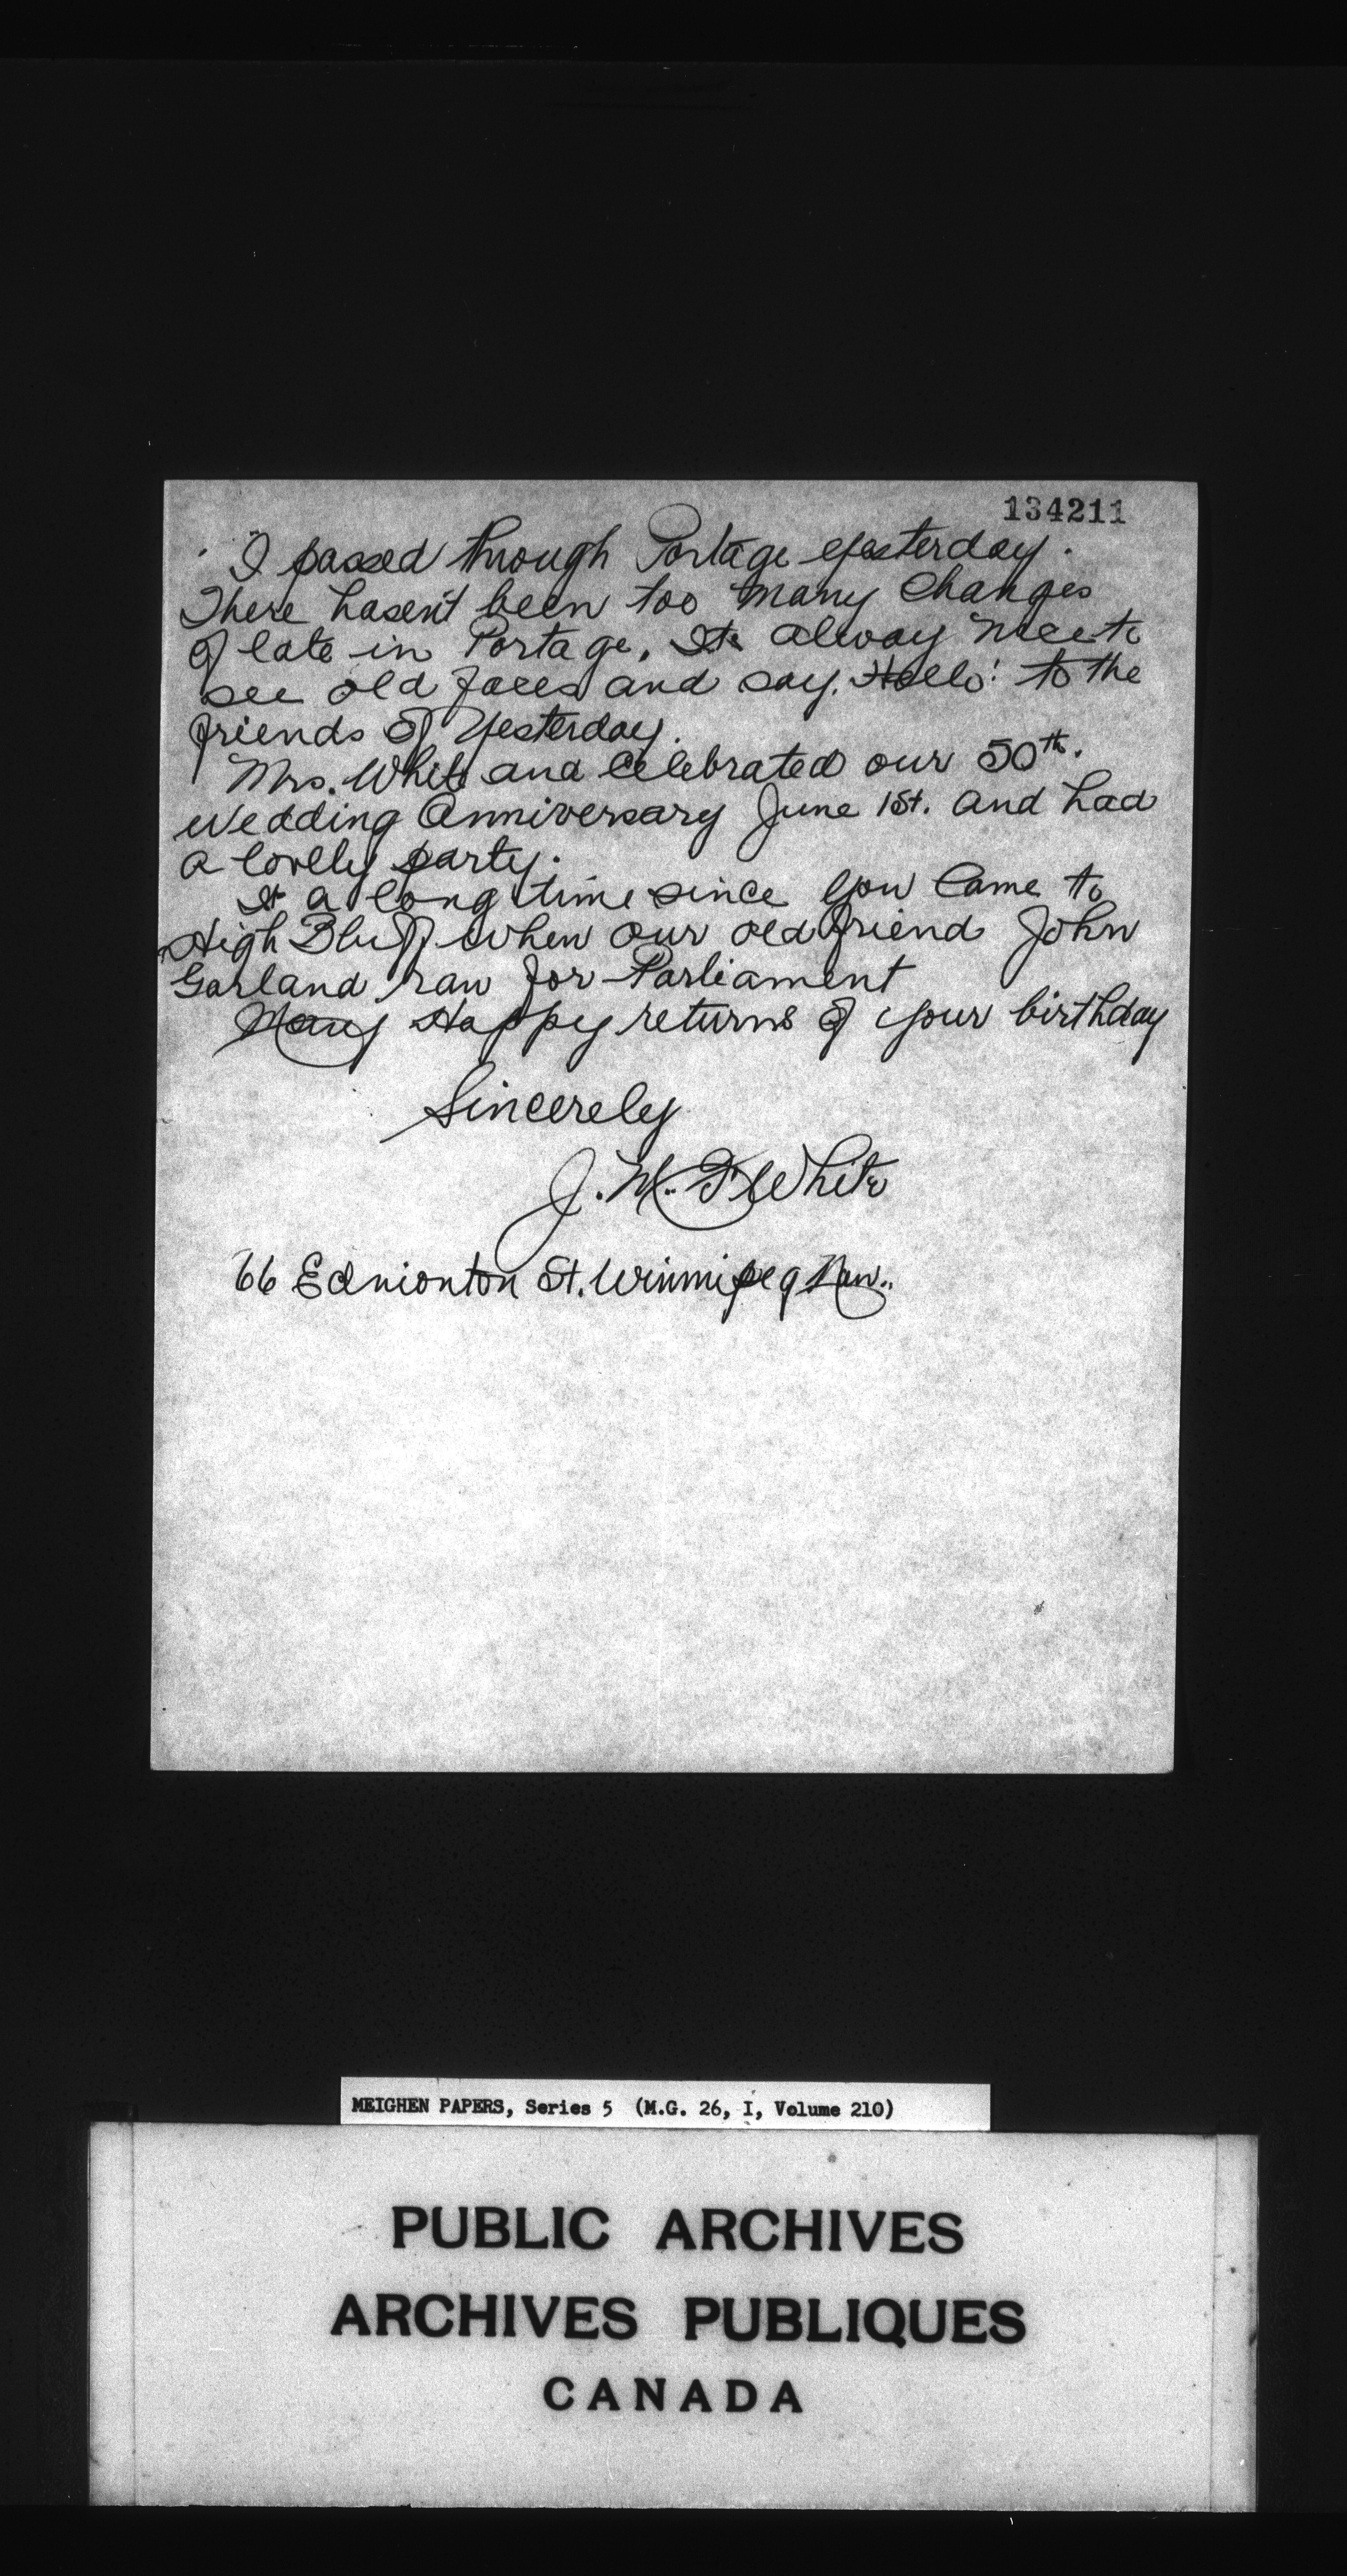 134211
I passed through Portage yesterday.
There hasen't been too many changes
of late in Portage. Its alway nice to
see old faces and say. Hello! to the
friends of Yesterday.
Mrs. White and celebrated our 50th.
Wedding Anniversary June 1st. and had
a lovely party.
It a long time since you came to
High Bluff when our old friend John
Garland ran for Parliament
Many Happy returns of your birthday
Sincerely
J. M. F. White
66 Edmonton St. Winnipeg Man.
MEIGHEN PAPERS, Series 5 (M.G. 26, I, Volume 210)
PUBLIC ARCHIVES
ARCHIVES PUBLIQUES
CANADA